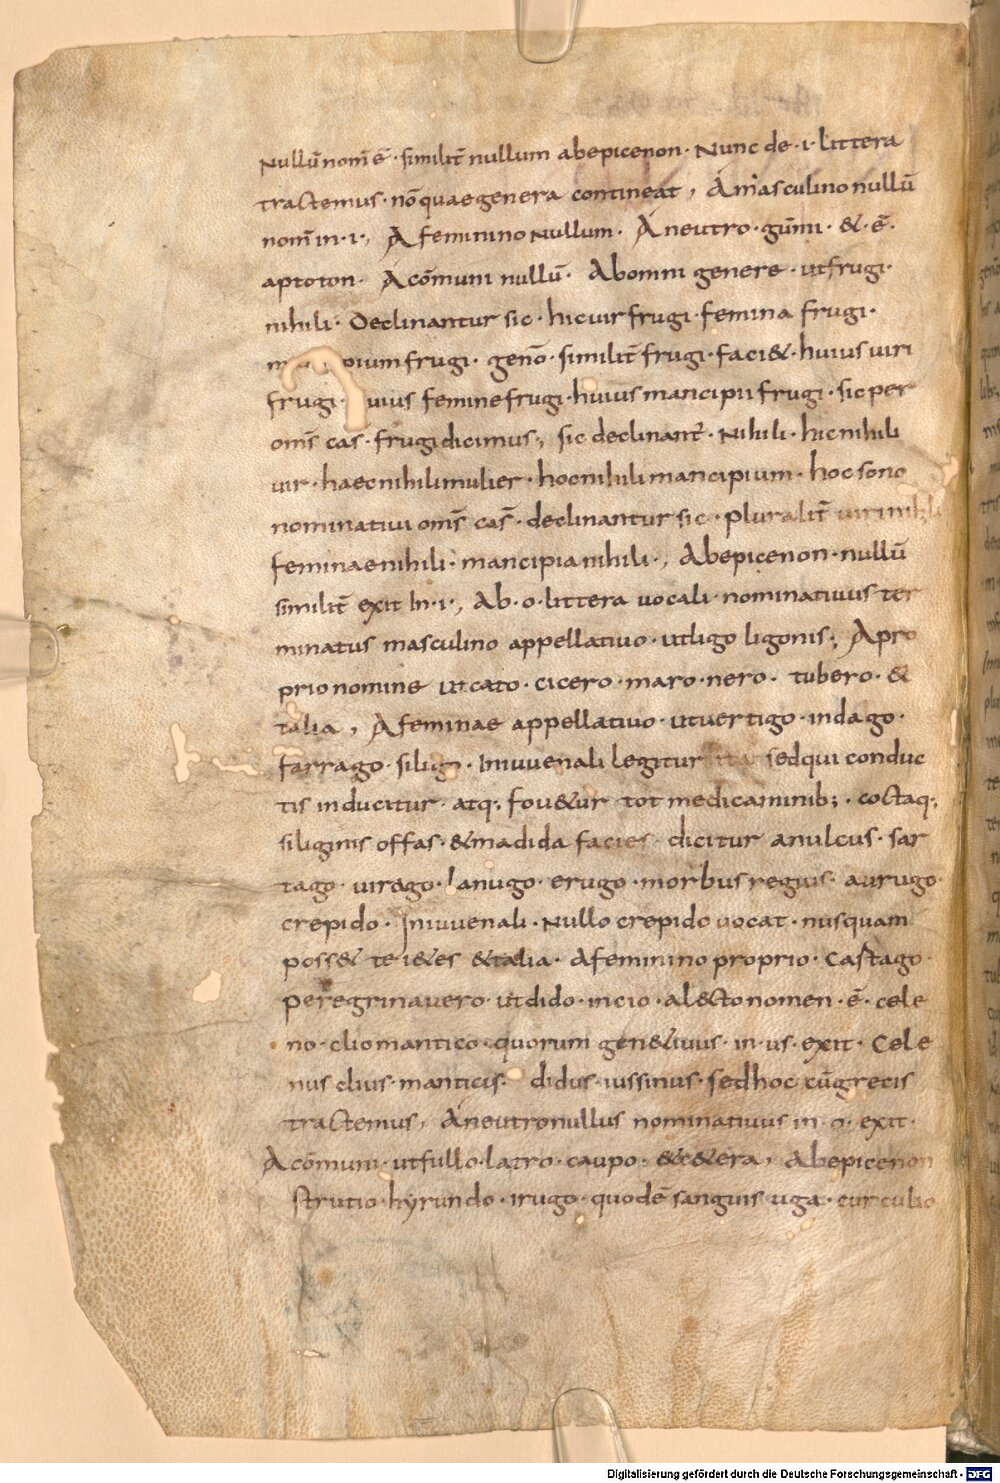 Nullū nom̄ ē · similit̄ nullum abepicenon · Nunc de · i · littera
tractemus · nō quae genera contineat , A masculino nullū
nom̄ in · i · , A feminino nullum · A neutro · gūmi · & · ē ·
aptoton · A cōmuni nullū · Abomni genere · ut frugi ·
nihili · Declinantur sic · hic vir frugi · femina frugi ·
pium frugi · genō · similit̄ frugi · faci& · huius viri
frugi · uius femine frugi · huius mancipii frugi · sic per
om̄s cas · frugi dicimus ; sic declinant̄ · Nihili · hic nihili
vir · haec nihili mulier · hoc nihili mancipium · hoc sono
nominativi om̄s cas̄ · declinantur sic · pluralit̄ viri nihili
feminae nihili · mancipia nihili · , Abepicenon · nullū
similit̄ exit In · i · , Ab · o · littera vocali · nominativus ter
minatus masculino appellativo · ut ligo ligonis ; A pro
prio nomine ut cato · cicero · maro · nero · tubero · &
talia , A feminae appellativo · ut vertigo · indago ·
farrago · siligo · In iuvenali legitur sed qui conduc
tis inducitur · atq; fov&ur tot medicaminib; · coctaq;
siliginis offas · & madida facies dicitur an ulcus · sar
tago · virago · lanugo · erugo · morbus regius · aurugo ·
crepido · In iuvenali · Nullo crepido vocat · nusquam
poss& te i&es & talia · A feminino proprio · Castago ·
peregrina vero · ut dido · in cio · al&to nomen · ē · cele
no · clio mantico · quorum gen&ivus · in · us · exit · Cele
nus clius · manticis · didus · iussinus · sed hoc cū grecis
tractemus , A neutro nullus nominativus in · o · exit ·
A cōmuni · ut fullo · latro · caupo · & c&era , Abepicenon
strutio · hyrundo · irugo · quod ē sanguis uga · curculio
Digitalisierung gefördert durch die Deutsche Forschungsgemeinschaft - DFG